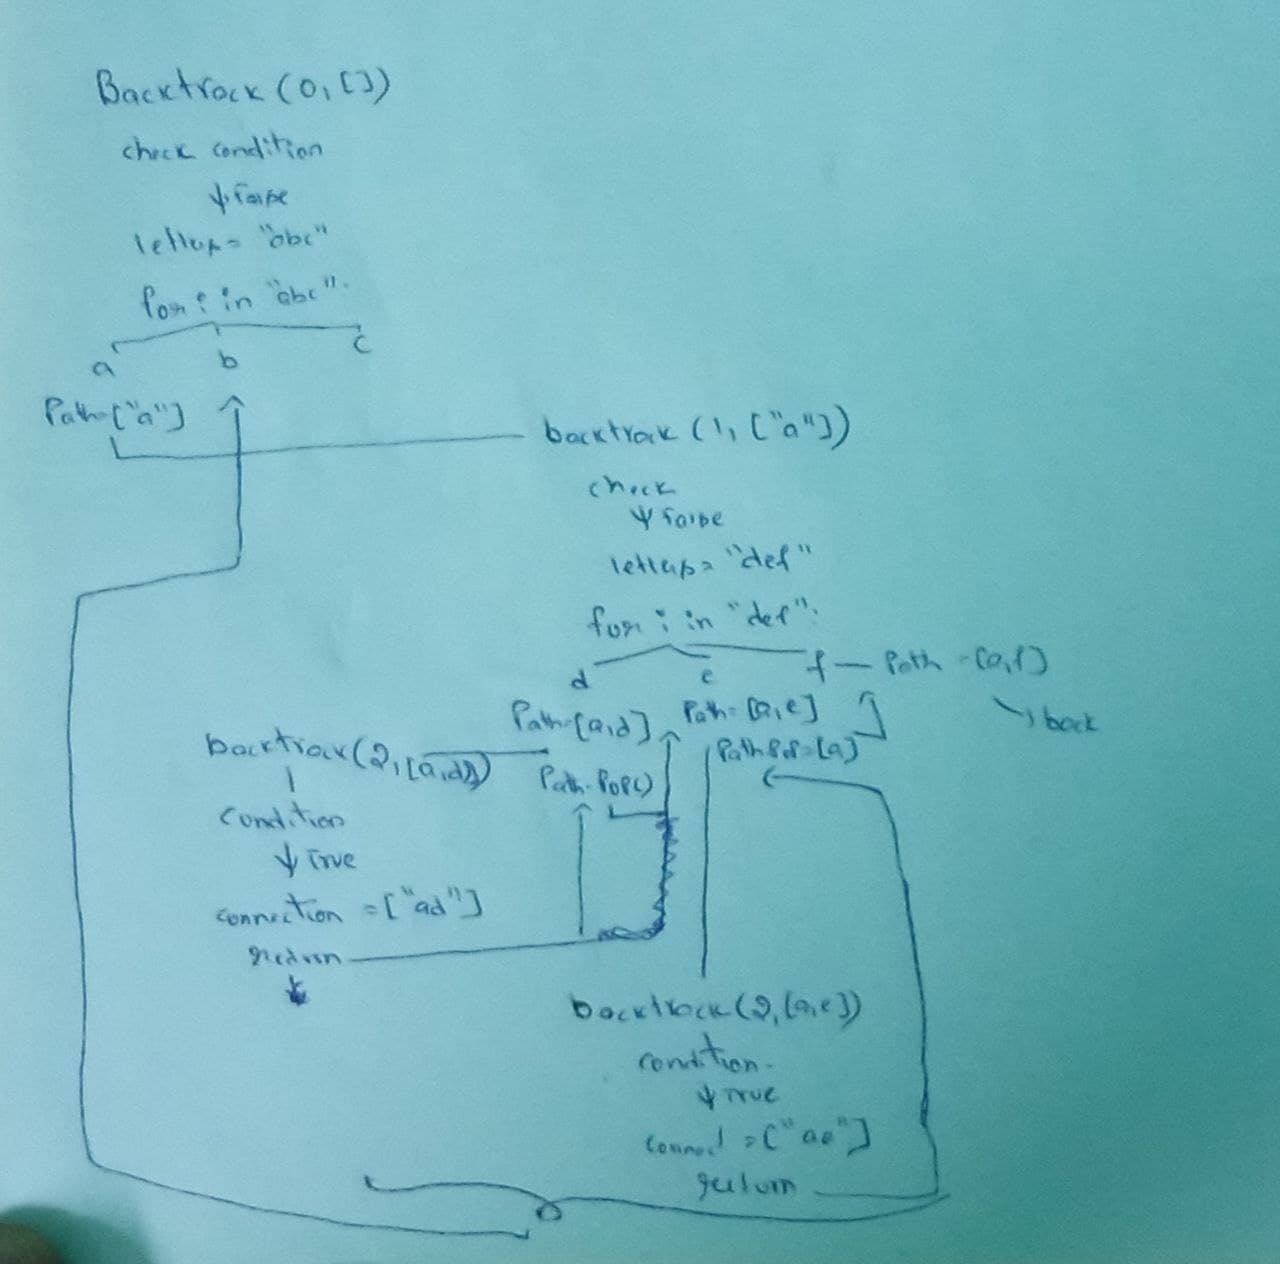 Backtrack (0, [])
check condition
↓ false
letters = "abc"
for i in "abc".
a b c
Path=["a"]
backtrack (1, ["a"])
check
↓ false
letters = "def"
for i in "def":
d e f — Path = [a,f]
Path=[a,d] Path=[a,e] ↘ back
backtrack(2,[a,d]) Path.Pop() Path Pop=[a]
condition
↓ True
connection = ["ad"]
return
backtrack(2,[a,e])
condition.
↓ True
connect = ["ae"]
return